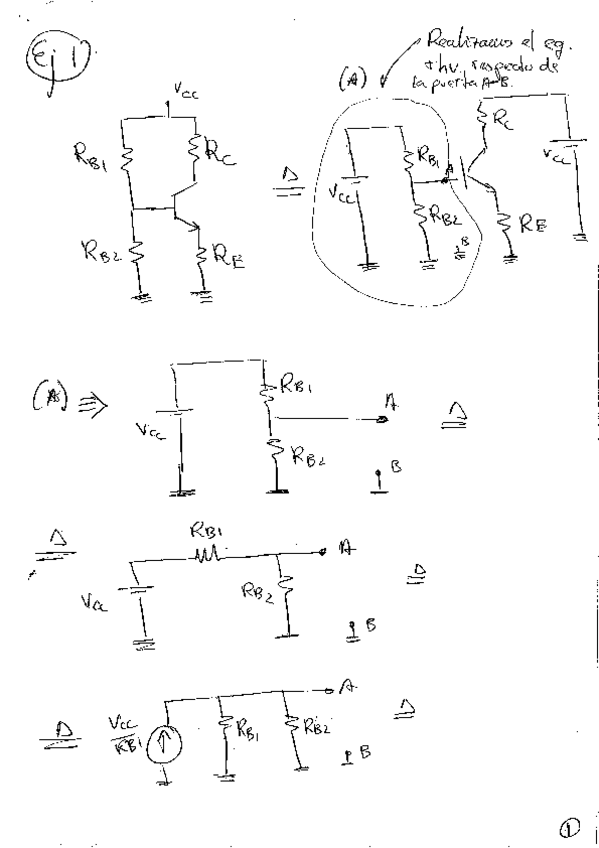 Ej 1)
Realizamos el eq.
thv. respecto de
la puerta A-B.
(A)
Vcc
RB1
RC
RB2
RE
Δ
Vcc
RB1
A
RB2
B
RC
Vcc
RE
(A) ⇛
Vcc
RB1
RB2
A
B
Δ
Δ
Vcc
RB1
RB2
A
B
Δ
Δ
Vcc
RB1
RB1
RB2
A
B
Δ
1